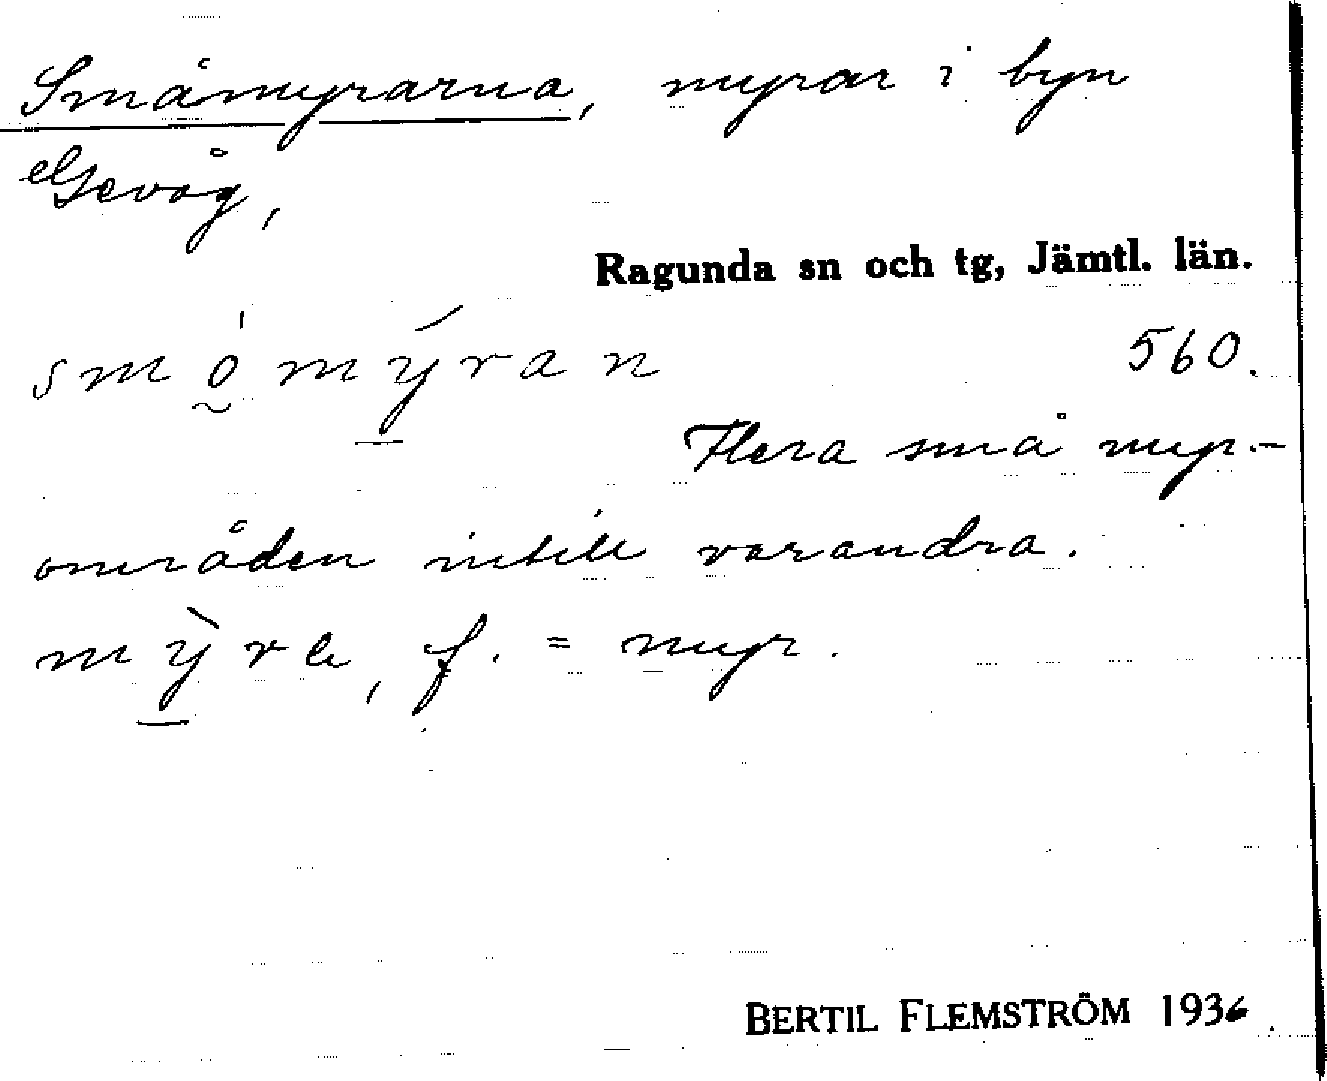 Småmyrarna, myrar i byn
Gevåg,
Ragunda sn och tg, Jämtl. län.
smo̰̍mý̱ran 560.
Flera små myr-
områden intill varandra.
mỳ̱re, f. = myr.
BERTIL FLEMSTRÖM 1936.